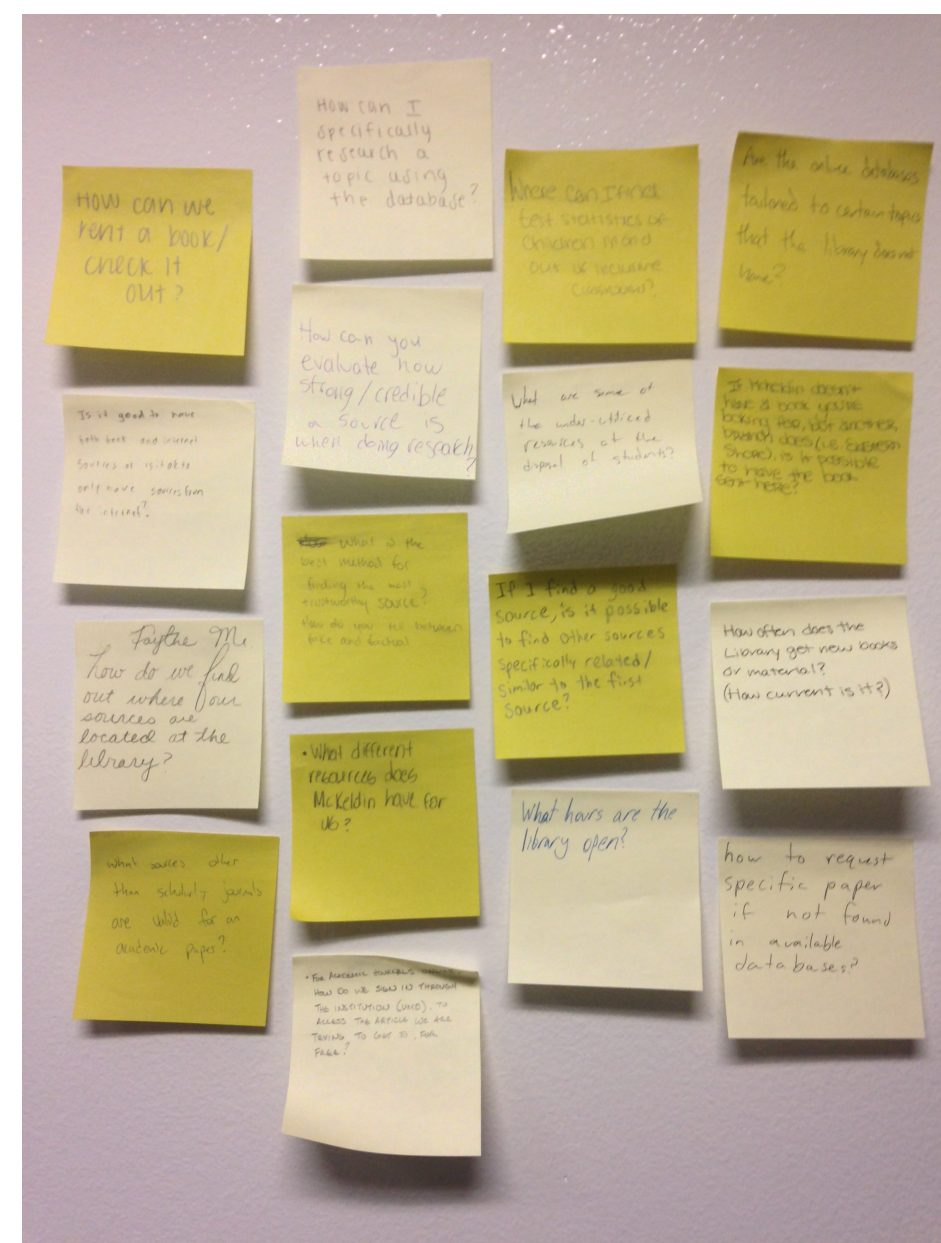 HOW CAN WE
rent a book/
check it
out?
Is it good to have
both book and internet
sources or is it ok to
only have sources from
the internet?
Faythe M.
how do we find
out where our
sources are
located at the
library?
what sources other
than scholarly journals
are valid for an
academic paper?
How can I
specifically
research a
topic using
the database?
How can you
evaluate how
strong/credible
a source is
when doing research?
What is the
best method for
finding the most
trustworthy source?
How do you tell between
free and factual
• What different
resources does
McKeldin have for
us?
• FOR ACADEMIC JOURNALS
HOW DO WE SIGN IN THROUGH
THE INSTITUTION (UMD), TO
ACCESS THE ARTICLE WE ARE
TRYING TO GET TO, FOR
FREE?
Where can I find
test statistics of
children in and
out of inclusive
classrooms?
What are some of
the under-utilized
resources at the
disposal of students?
If I find a good
source, is it possible
to find other sources
specifically related/
similar to the first
source?
What hours are the
library open?
Are the online databases
tailored to certain topics
that the library does not
have?
If McKeldin doesn't
have a book you're
looking for, but another
branch does (i.e. Eastern
Shore), is it possible
to have the book
sent here?
How often does the
Library get new books
or material?
(How current is it?)
how to request
specific paper
if not found
in available
databases?